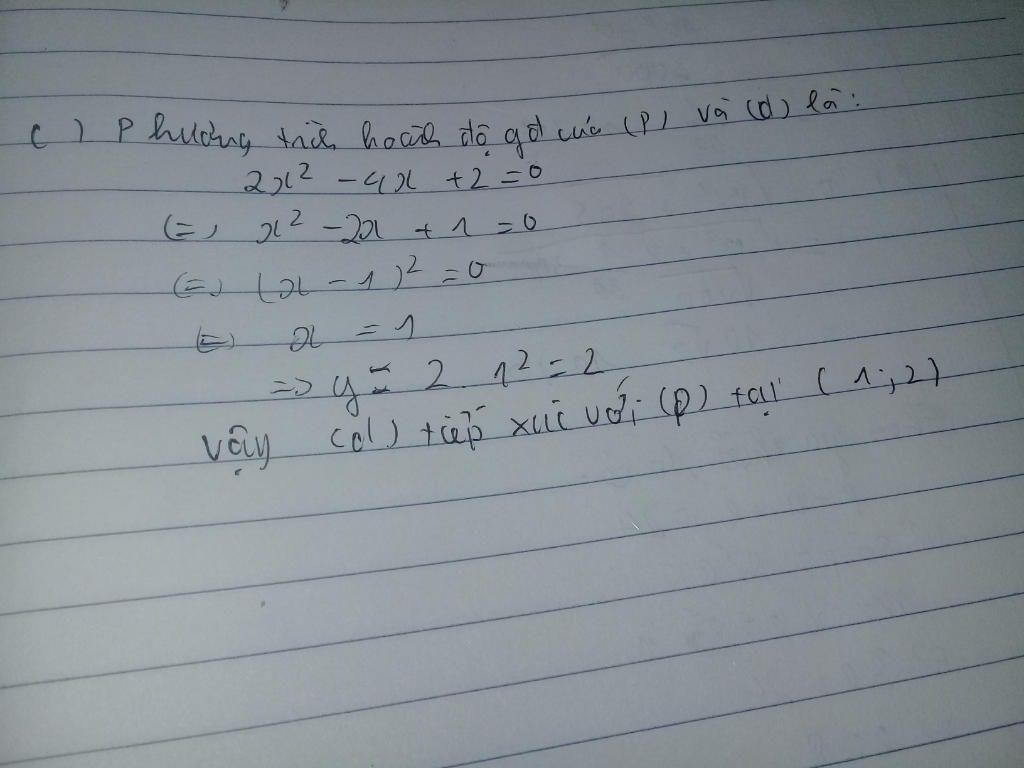 c) Phương trình hoành độ gđ của (P) và (d) là:
2x² - 4x + 2 = 0
(=) x² - 2x + 1 = 0
(=) (x - 1)² = 0
(=) x = 1
=> y = 2. 1² = 2
Vậy (d) tiếp xúc với (P) tại (1; 2)